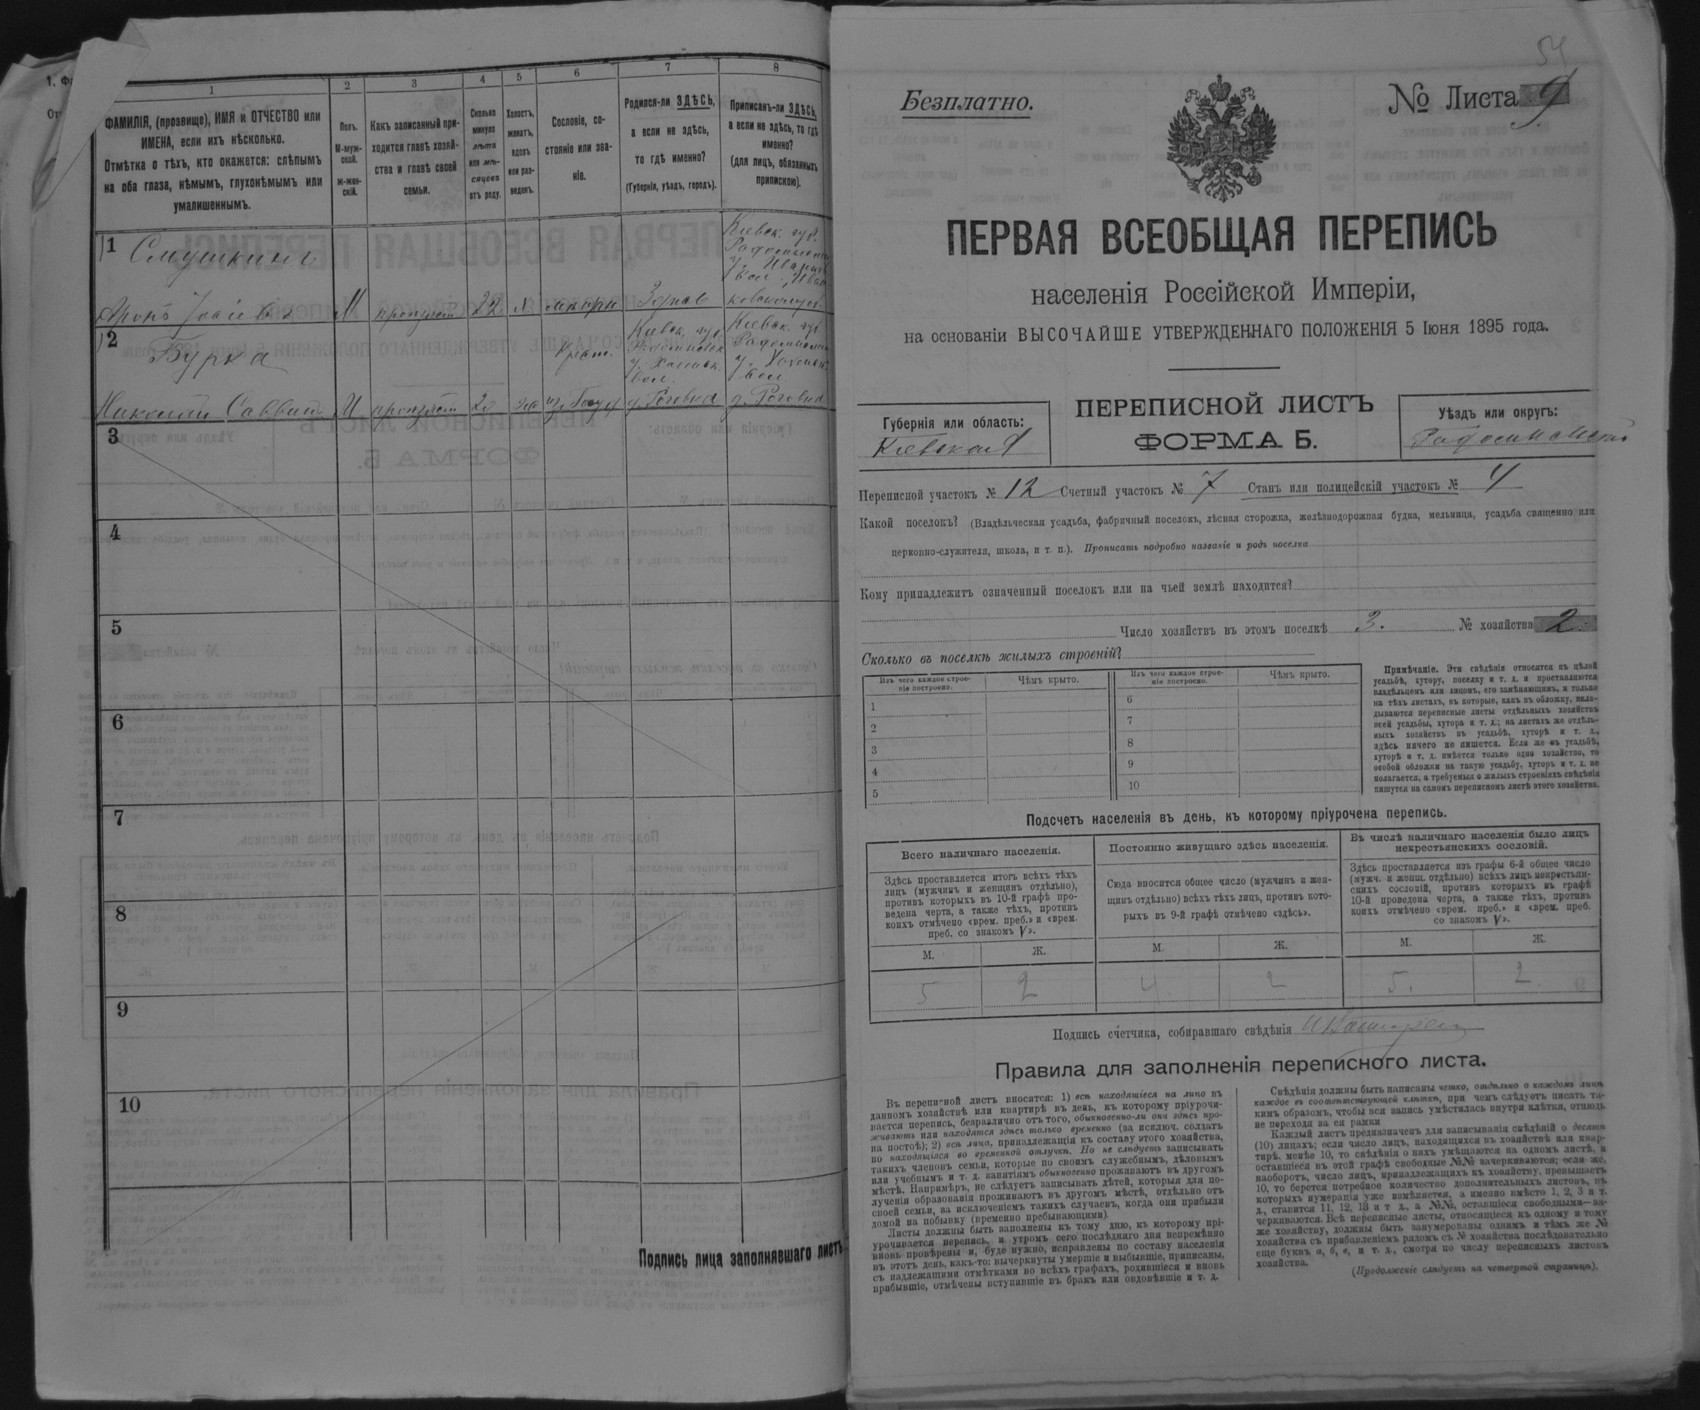 1
2
3
4
5
6
7
8
ФАМИЛІЯ, (прозвище), ИМЯ и ОТЧЕСТВО или
ИМЕНА, если ихъ нѣсколько.
Отмѣтка о тѣхъ, кто окажется: слѣпымъ
на оба глаза, нѣмымъ, глухонѣмымъ или
умалишеннымъ.
Полъ.
М-муж-
ской.
ж-жен-
скій.
Какъ записанный при-
ходится главѣ хозяй-
ства и главѣ своей
семьи.
Сколько
минуло
лѣтъ
или мѣ-
сяцевъ
отъ роду.
Холостъ,
женатъ,
вдовъ
или раз-
веденъ.
Сословіе, со-
стояніе или зва-
ніе.
Родился-ли ЗДѢСЬ,
а если не здѣсь,
то гдѣ именно?
(Губернія, уѣздъ, городъ).
Приписанъ-ли ЗДѢСЬ,
а если не здѣсь, то гдѣ
именно?
(для лицъ, обязанныхъ
припискою).
1
Кіевск. губ.
М
22
2
Бурка
Кіевск. губ.
Кіевск. губ.
Николай Саввин
М
д. Роговка
д. Роговка
3
4
5
6
7
8
9
10
Подпись лица заполнявшаго листъ
54
Безплатно.
№ Листа 9
ПЕРВАЯ ВСЕОБЩАЯ ПЕРЕПИСЬ
населенія Россійской Имперіи,
на основаніи ВЫСОЧАЙШЕ УТВЕРЖДЕННАГО ПОЛОЖЕНІЯ 5 Іюня 1895 года.
Губернія или область:
Кіевская
ПЕРЕПИСНОЙ ЛИСТЪ
ФОРМА Б.
Уѣздъ или округъ:
Радомысльскій
Переписной участокъ № 12 Счетный участокъ № 7 Станъ или полицейскій участокъ № 4
Какой поселокъ? (Владѣльческая усадьба, фабричный поселокъ, лѣсная сторожка, желѣзнодорожная будка, мельница, усадьба священно или
церковно-служителя, школа, и т. п.). Прописать подробно названіе и родъ поселка
Кому принадлежитъ означенный поселокъ или на чьей землѣ находится?
Число хозяйствъ въ этомъ поселкѣ 3. № хозяйства 2
Сколько въ поселкѣ жилыхъ строеній?
Изъ чего каждое строе-
ніе построено.
Чѣмъ крыто.
Изъ чего каждое строе-
ніе построено.
Чѣмъ крыто.
1
2
3
4
5
6
7
8
9
10
Примѣчаніе. Эти свѣдѣнія относятся къ цѣлой
усадьбѣ, хутору, поселку и т. д. и проставляются
владѣльцемъ или лицомъ, его замѣняющимъ, и только
на тѣхъ листахъ, въ которые, какъ въ обложку, вкла-
дываются переписные листы отдѣльныхъ хозяйствъ
всей усадьбы, хутора и т. д.; на листахъ же отдѣль-
ныхъ хозяйствъ въ усадьбѣ, хуторѣ и т. д.,
здѣсь ничего не пишется. Если же въ усадьбѣ,
хуторѣ и т. д. имѣется только одно хозяйство, то
особой обложки на такую усадьбу, хуторъ и т. д. не
полагается, а требуемыя о жилыхъ строеніяхъ свѣдѣнія
пишутся на самомъ переписномъ листѣ этого хозяйства.
Подсчетъ населенія въ день, къ которому пріурочена перепись.
Всего наличнаго населенія.
Здѣсь проставляется итогъ всѣхъ тѣхъ
лицъ (мужчинъ и женщинъ отдѣльно),
противъ которыхъ въ 10-й графѣ про-
ведена черта, а также тѣхъ, противъ
коихъ отмѣчено «врем. преб.» и «врем.
преб. со знакомъ V».
Постоянно живущаго здѣсь населенія.
Сюда вносится общее число (мужчинъ и жен-
щинъ отдѣльно) всѣхъ тѣхъ лицъ, противъ кото-
рыхъ въ 9-й графѣ отмѣчено «здѣсь».
Въ числѣ наличнаго населенія было лицъ
некрестьянскихъ сословій.
Здѣсь проставляется изъ графы 6-й общее число
(мужч. и женщ. отдѣльно) всѣхъ лицъ некрестьян-
скихъ сословій, противъ которыхъ въ графѣ
10-й проведена черта, а также тѣхъ, противъ
коихъ отмѣчено «врем. преб.» и «врем. преб.
со знакомъ V».
М.
Ж.
М.
Ж.
М.
Ж.
5
2
4
2
5.
2
Подпись счетчика, собиравшаго свѣдѣнія
Правила для заполненія переписного листа.
Въ переписной листъ вносятся: 1) всѣ находящіеся на лицо въ
данномъ хозяйствѣ или квартирѣ въ день, къ которому пріурочи-
вается перепись, безразлично отъ того, обыкновенно-ли они здѣсь про-
живаютъ или находятся здѣсь только временно (за исключ. солдатъ
на постоѣ); 2) всѣ лица, принадлежащія къ составу этого хозяйства,
но находящіяся во временной отлучкѣ. Но не слѣдуетъ записывать
такихъ членовъ семьи, которые по своимъ служебнымъ, дѣловымъ
или учебнымъ и т. д. занятіямъ обыкновенно проживаютъ въ другомъ
мѣстѣ. Напримѣръ, не слѣдуетъ записывать дѣтей, которыя для по-
лученія образованія проживаютъ въ другомъ мѣстѣ, отдѣльно отъ
своей семьи, за исключеніемъ такихъ случаевъ, когда они прибыли
домой на побывку (временно пребывающими).
Листы должны быть заполнены къ тому дню, къ которому прі-
урочивается перепись, и утромъ сего послѣдняго дня непремѣнно
вновь провѣрены и, буде нужно, исправлены по составу населенія
въ этотъ день, какъ-то: вычеркнуты умершіе и выбывшіе, приписаны,
съ надлежащими отмѣтками во всѣхъ графахъ, родившіеся и вновь
прибывшіе, отмѣчены вступившіе въ бракъ или овдовѣвшіе и т. д.
Свѣдѣнія должны быть написаны четко, отдѣльно о каждомъ лицѣ
каждое въ соотвѣтствующей клѣткѣ, при чемъ слѣдуетъ писать та-
кимъ образомъ, чтобы вся запись умѣстилась внутри клѣтки, отнюдь
не переходя за ея рамки
Каждый листъ предназначенъ для записыванія свѣдѣній о десяти
(10) лицахъ; если число лицъ, находящихся въ хозяйствѣ или квар-
тирѣ, менѣе 10, то свѣдѣнія о нихъ умѣщаются на одномъ листѣ, и
оставшіеся въ этой графѣ свободные №№ зачеркиваются; если же,
наоборотъ, число лицъ, принадлежащихъ къ хозяйству, превышаетъ
10, то берется потребное количество дополнительныхъ листовъ, въ
которыхъ нумерація уже измѣняется, а именно вмѣсто 1, 2, 3 и т.
д., ставится 11, 12, 13 и т д., а №№, оставшіеся свободными—за-
черкиваются. Всѣ переписные листы, относящіеся къ одному и тому
же хозяйству, должны быть занумерованы однимъ и тѣмъ же №
хозяйства съ прибавленіемъ рядомъ съ № хозяйства послѣдовательно
еще буквъ а, б, в, и т. д., смотря по числу переписныхъ листовъ
хозяйства.
(Продолженіе слѣдуетъ на четвертой страницѣ).